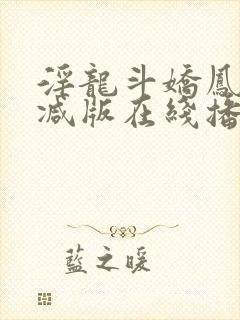 淫龍斗嬌鳳
減版在綫播
藍之暖